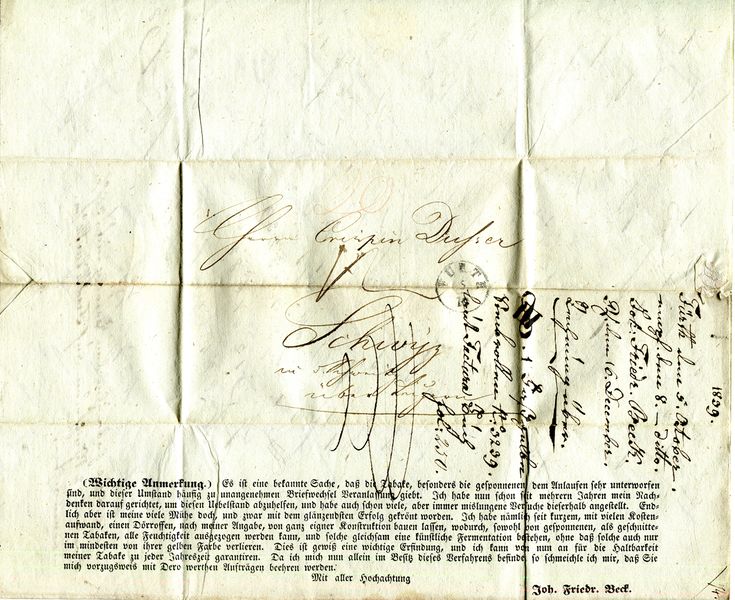 Herrn Crispin
FURTH
Schwyz
1839.
Fürth den 5 October.
den 8.— ditto.
Joh: Friedr. Beck.
16 December.
Laut Factura Buch
fol: 250.
(Wichtige Anmerkung.) Es ist eine bekannte Sache, daß die Tabake, besonders die gesponnenen dem Anlaufen sehr unterworfen
sind, und dieser Umstand häufig zu unangenehmen Briefwechsel Veranlassung giebt. Ich habe nun schon seit mehrern Jahren mein Nach-
denken darauf gerichtet, um diesen Uebelstand abzuhelfen, und habe auch schon viele, aber immer mislungene Versuche dieserhalb angestellt. End-
lich aber ist meine viele Mühe doch, und zwar mit dem glänzendsten Erfolg gekrönt worden. Ich habe nämlich seit kurzem, mit vielen Kosten-
aufwand, einen Dörroffen, nach meiner Angabe, von ganz eigner Konstruktion bauen lassen, wodurch, sowohl den gesponnenen, als geschnitte-
nen Tabaken, alle Feuchtigkeit ausgezogen werden kann, und solche gleichsam eine künstliche Fermentation bestehen, ohne daß solche auch nur
im mindesten von ihrer gelben Farbe verlieren. Dies ist gewis eine wichtige Erfindung, und ich kann von nun an für die Haltbarkeit
meiner Tabake zu jeder Jahrszeit garantiren. Da ich mich nun allein im Besitz dieses Verfahrens befinde, so schmeichle ich mir, daß Sie
mich vorzugsweis mit Dero werthen Aufträgen beehren werden.
Mit aller Hochachtung
Joh. Friedr. Beck.